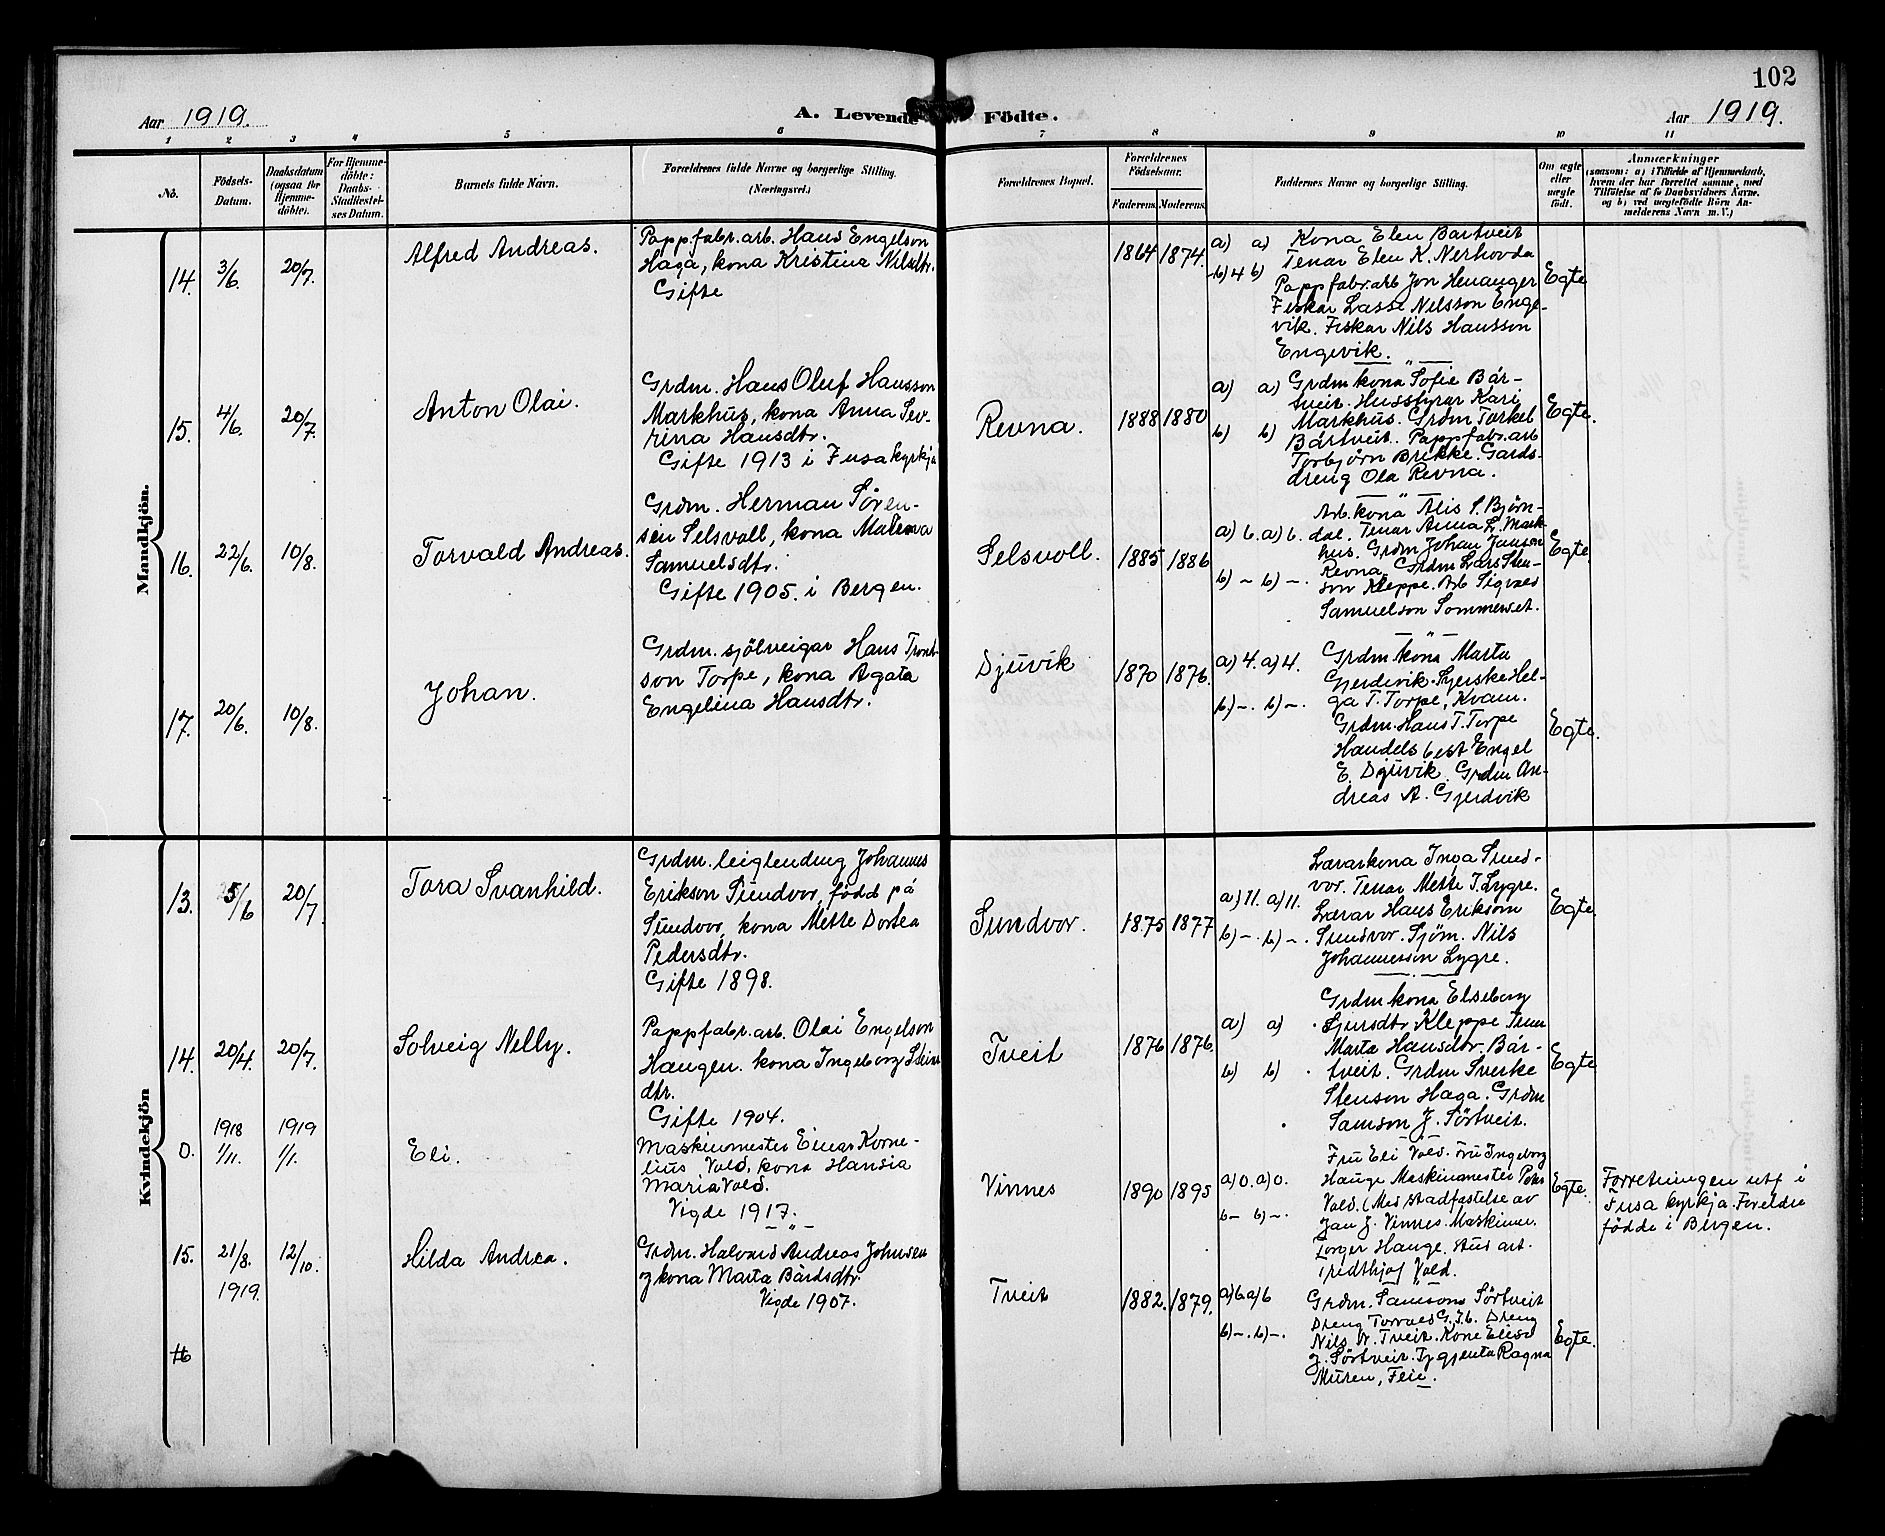 102
Aar 1919.
A. Levende Födte.
Aar 1919.
1 2 3 4 5 6 7 8 9 10 11
No.
Födsels-
Datum.
Daabsdatum
(ogsaa for
Hjemme-
döbte).
For Hjemme-
döbte:
Daabs-
Stadfæstel-
ses Datum.
Barnets fulde Navn.
Forældrenes fulde Navne og borgerlige Stilling.
(Næringsvei.)
Forældrenes Bopæl.
Forældrenes
Födselsaar.
Faderens. Moderens.
Faddernes Navne og borgerlige Stilling.
Om ægte
eller
uægte
födt.
Anmærkninger
(saasom: a) i Tilfælde af Hjemmedaab,
hvem der har forrettet samme, med
Tilföielse af to Daabsvidners Navne,
og b) ved uægtefödte Börn An-
melderens Navn m. V.)
Mandkjön.
14. 3/6. 20/7.
Alfred Andreas.
Pappfabr.arb. Hans Engelson
Haga, kona Kristina Nilsdtr.
Gifte
1864 1874.
a) a)
b) 4 b)
Kona Elen Bartveit
Tenar Elen K. Nerhovda
Pappfabr.arb Jon Henanger
Fiskar Lasse Nilsson Enge-
vik. Fiskar Nils Hansson
Engevik.
Egte
15. 4/6. 20/7.
Anton Olai.
Grdm. Hans Oluf Hansson
Markhus, kona Anna Sev-
rina Hansdtr.
Gifte 1913 i Fusakyrkja
Revna.
1888 1880
a) a)
b) b)
Grdm kona Sofie Bår-
tveit. Husstyrar Kari
Markhus. Grdm Torkel
Bårtveit. Pappfabr.arb
Torbjörn Brekke. Gards-
dreng Ola Revna.
Egte.
16. 22/6. 10/8.
Torvald Andreas.
Grdm. Herman Sören-
sen Selsvoll, kona Malena
Samuelsdtr.
Gifte 1905. i Bergen.
Selsvoll.
1885 1886
a) 6. a) 6.
b) – b) –.
Arb. kona Alis S. Björn-
dal. Tenar Anna L. Mark-
hus. Grdm Johan Janson
Revna. Grdm Lars Sten-
son Kleppe. Arb Sigvald
Samuelson Sommerset.
Egte.
17. 20/6. 10/8.
Johan.
Grdm. sjölveigar Hans Trond-
son Torpe, kona Agata
Engelina Hansdtr.
Djuvik
1870 1876.
a) 4. a) 4.
b) –. b) –.
Grdm kona Marta
Gjerdevik. Syerske Hel-
ga T. Torpe, Kvam.
Grdm. Hans T. Torpe
Handelsbest Engel
E. Djuvik. Grdm An-
dreas A. Gjerdvik
Egte.
Kvindekjön
13. 5/6 20/7.
Tora Svanhild.
Grdm. leiglending Johannes
Erikson Sundvor, född på
Sundvor, kona Mette Dortea
Pedersdtr.
Gifte 1898.
Sundvor.
1875 1877
a) 11. a) 11.
b) –. b) –.
Lærarkona Inga Sund-
vor. Tenar Mette T. Lygre.
Lærar Hans Erikson
Sundvor. Sjöm. Nils
Johannesson Lygre.
Egte.
14. 20/4. 20/7.
Solveig Nelly.
Pappfabr. arb. Olai Engelson
Haugen. kona Ingeborg Steins
dtr.
Gifte 1904.
Tveit
1876 1876.
a) a)
b) b)
Grdm kona Elseborg
Sjursdtr Kleppe Tenar
Marta Hansdtr. Bår-
tveit. Grdm Sverke
Stenson Haga. Grdm
Samson J. Sörtveit.
Egte
0. 1918 1/11. 1919 1/1.
Eli.
Maskinmester Einar Korne-
lius Vold, kona Hansia
Maria Vold.
Vigde 1917.
Vinnes
1890 1895
a) 0. a) 0.
b – b) –.
Fru Eli Vold. Fru Ingeborg
Hauge Maskinmester Peter
Vold. (Med stadfastelse av
Jan J. Vinnes. Maskinm.
Torger Hauge. stud art.
Fridthjof Vold.
Egte.
Forretningen utf i
Fusa kyrkja. Foreldre
födde i Bergen.
15. 21/8. 1919. 12/10.
Hilda Andrea.
Grdm. Halvard Andreas Johnsen
og kona Marta Bårdsdtr.
Vigde 1907.
Tveit
1882. 1879.
a) 6 a) 6
b) –. b) –.
Grdm. Samson Sörtveit
Dreng Torvald G. Dreng
Nils N. Tveit. Kone Elisa
J. Sörtveit. Ragna
Muren, Feie.
Egte.